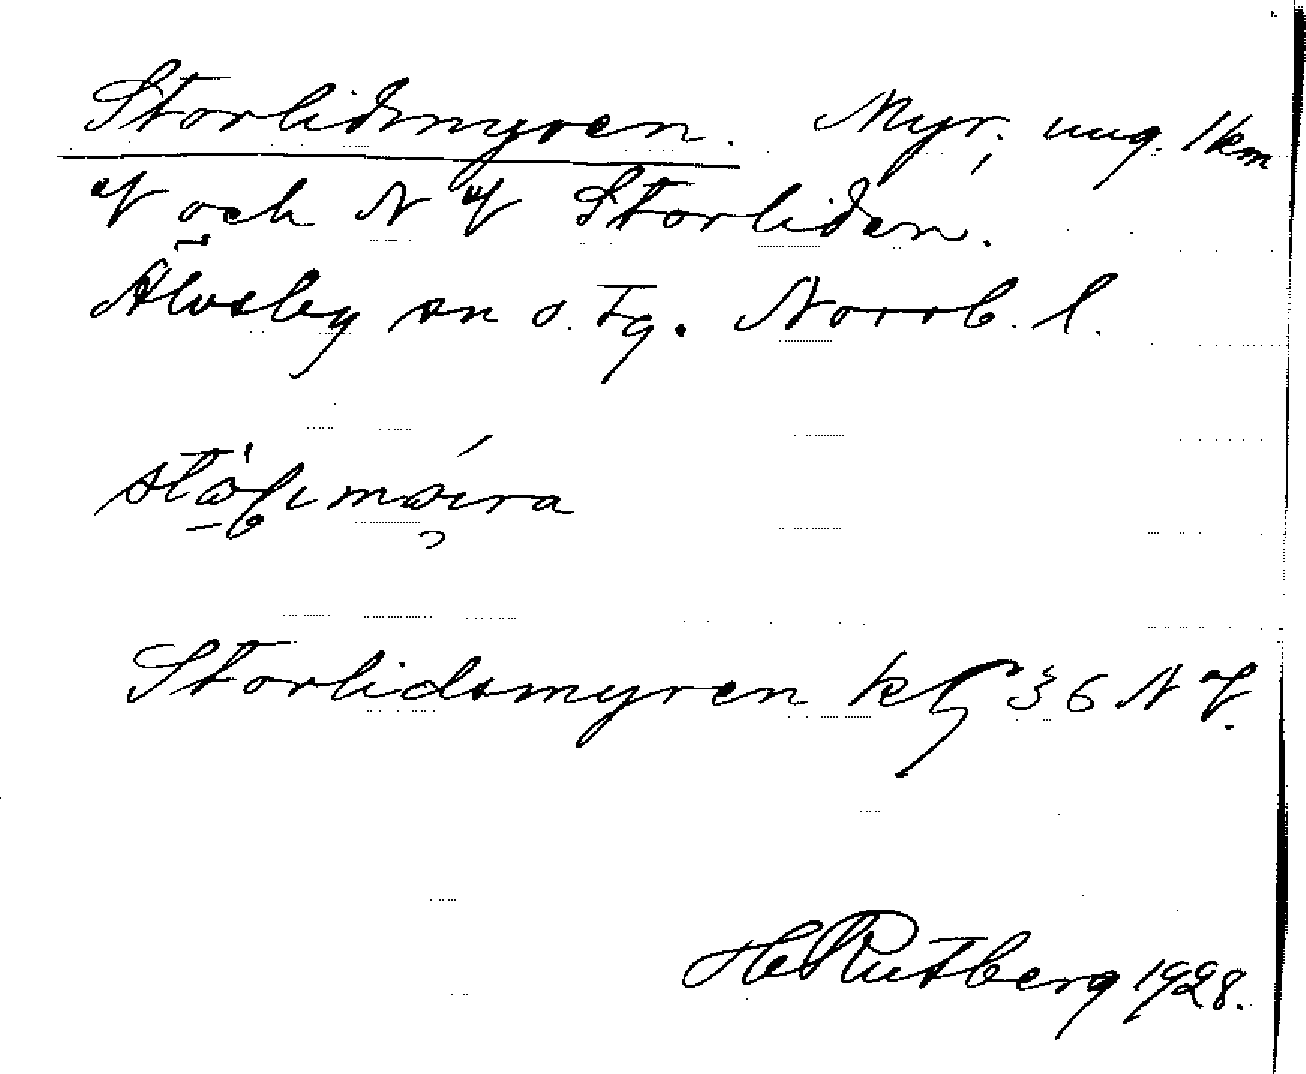 Storlidsmyren. Myr, ung. 1 km
V och NV Storliden.
Älvsby sn o. tg. Norrb. l.
Storlidsmyren kbl 36 NV.
H Rutberg 1928.